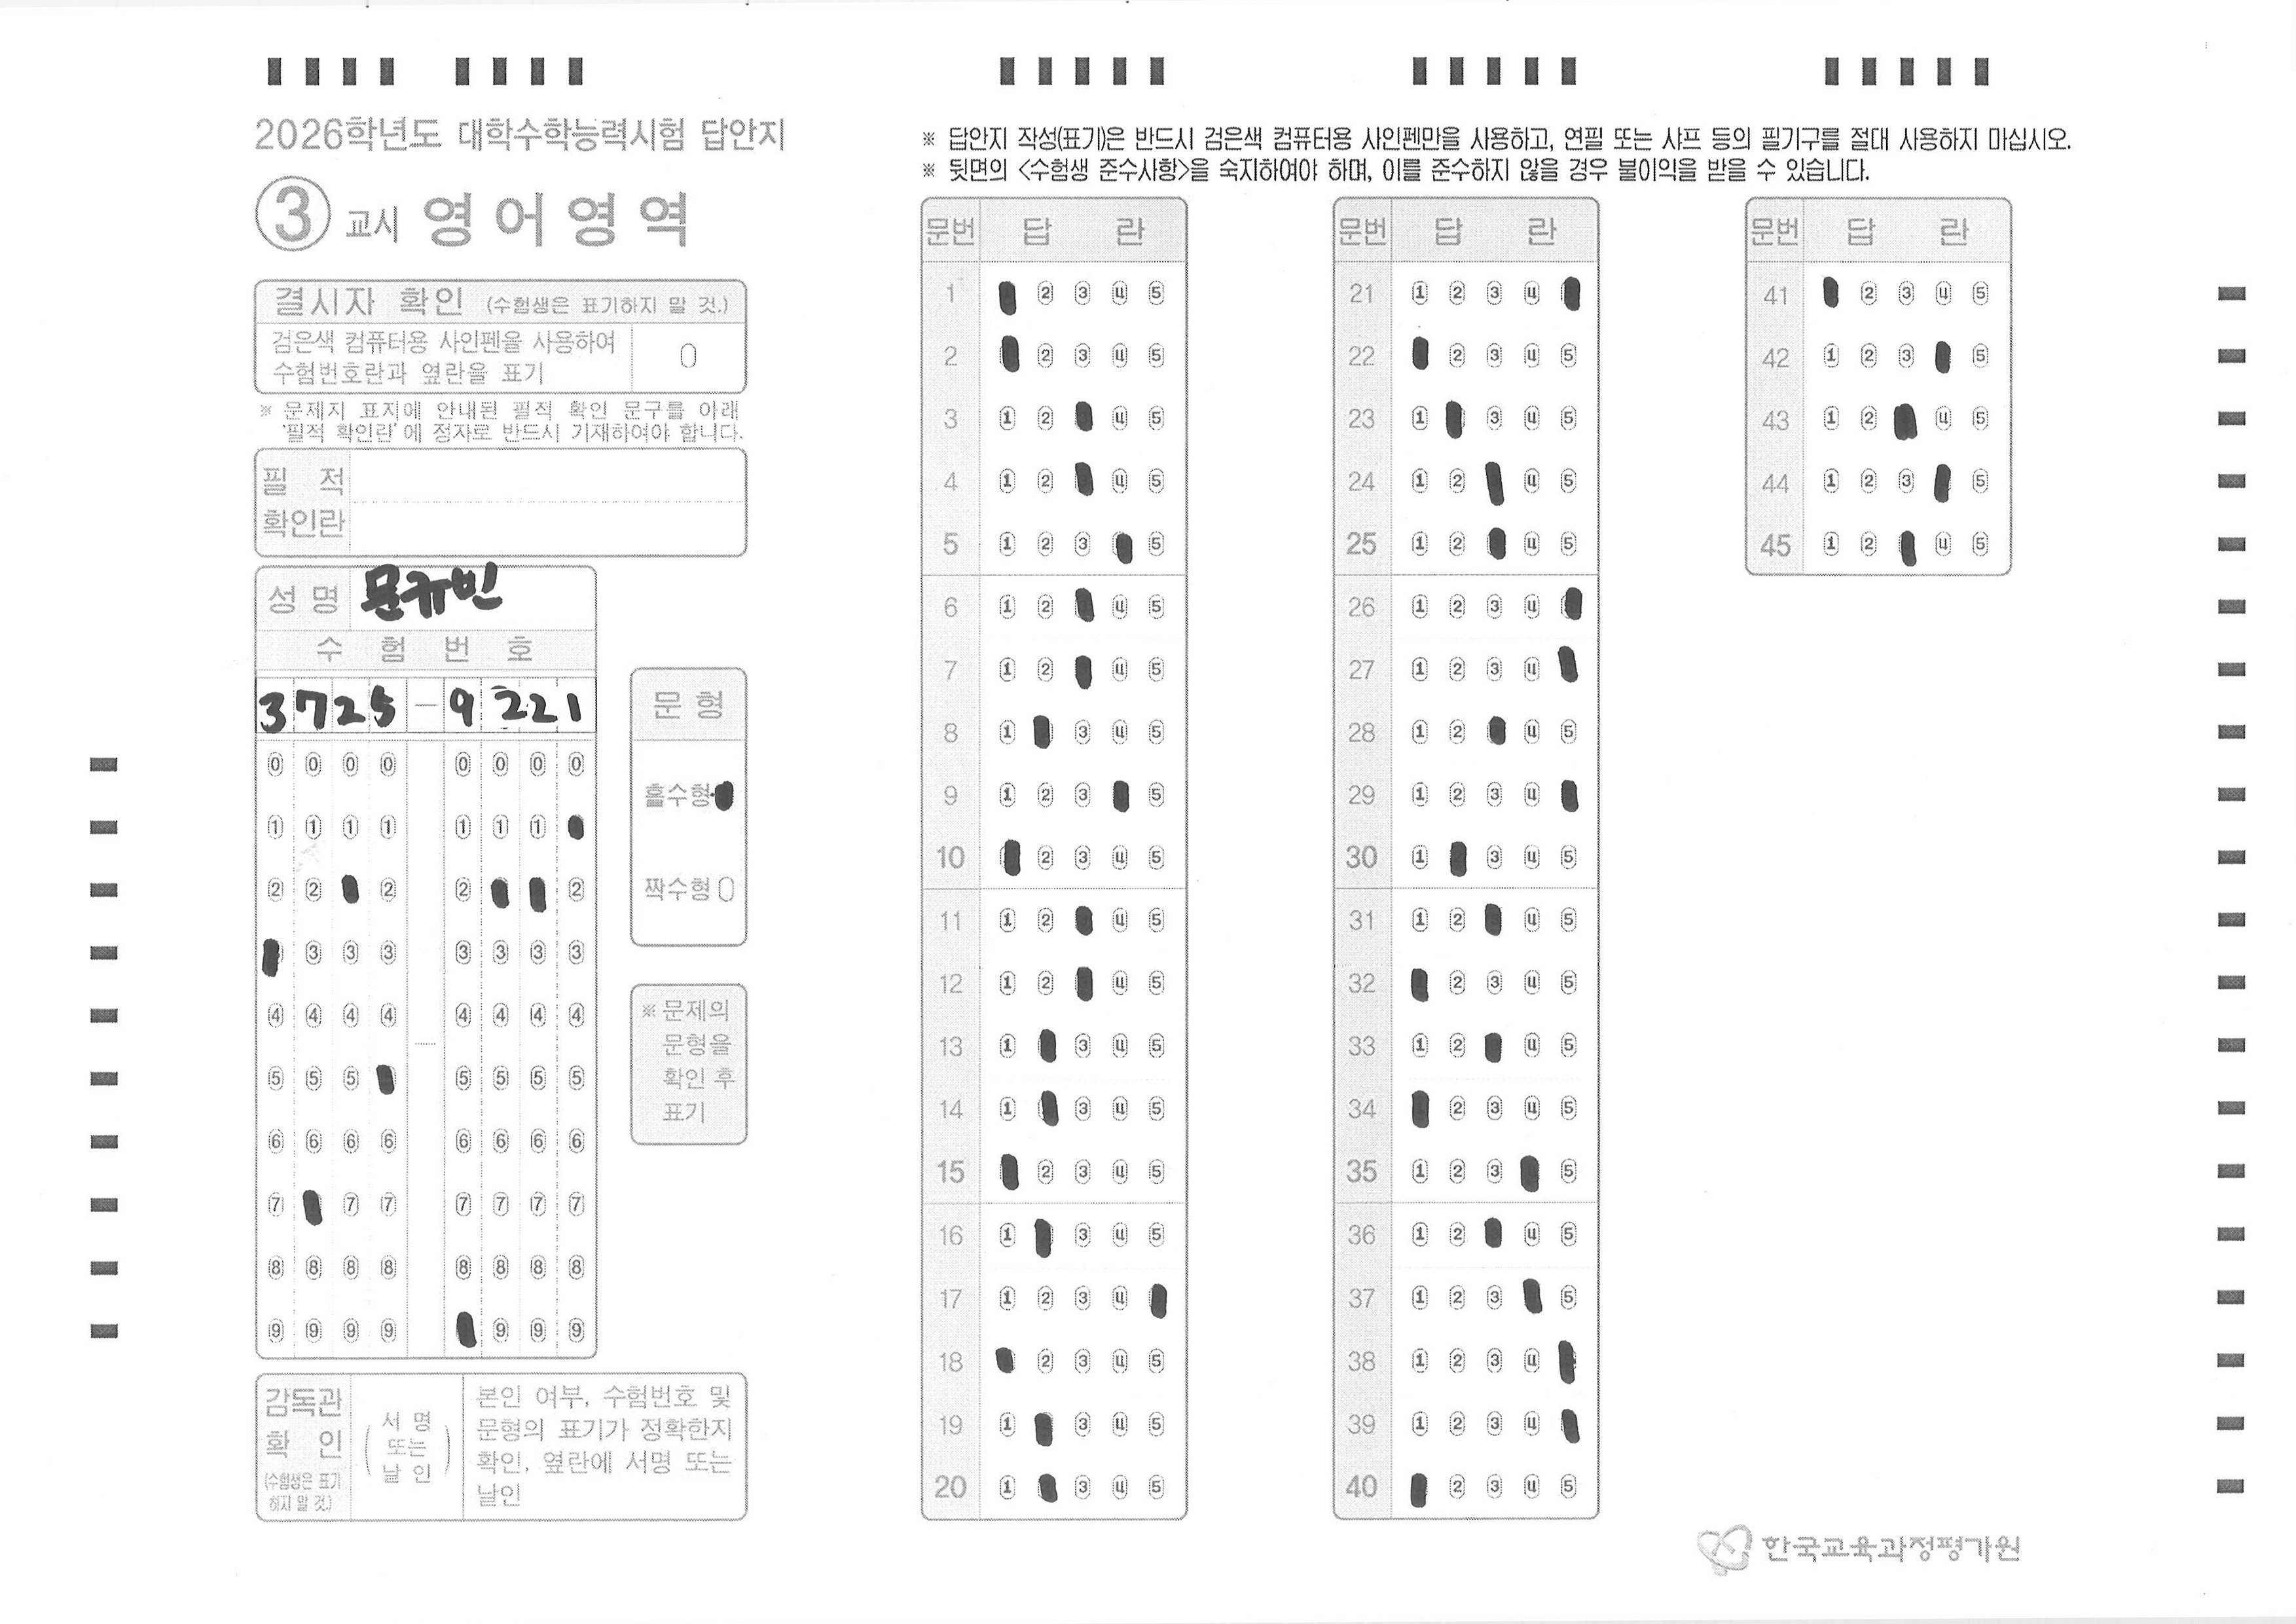 2026학년도 대학수학능력시험 답안지
3 교시 영어영역
결시자 확인 (수험생은 표기하지 말 것.)
검은색 컴퓨터용 사인펜을 사용하여
수험번호란과 옆란을 표기
0
※ 문제지 표지에 안내된 필적 확인 문구를 아래
'필적 확인란'에 정자로 반드시 기재하여야 합니다.
필 적
확인란
성 명 문규빈
수 험 번 호
3 7 2 5 - 9 2 2 1
0 0 0 0 0 0 0 0
1 1 1 1 1 1 1
2 2 2 2 2
3 3 3 3 3 3 3
4 4 4 4 4 4 4 4
5 5 5 5 5 5 5
6 6 6 6 6 6 6 6
7 7 7 7 7 7 7
8 8 8 8 8 8 8 8
9 9 9 9 9 9 9
문 형
홀수형
짝수형
※ 문제의
문형을
확인 후
표기
감독관
확 인
(수험생은 표기
하지 말 것.)
(서 명
또는
날 인)
본인 여부, 수험번호 및
문형의 표기가 정확한지
확인, 옆란에 서명 또는
날인
※ 답안지 작성(표기)은 반드시 검은색 컴퓨터용 사인펜만을 사용하고, 연필 또는 샤프 등의 필기구를 절대 사용하지 마십시오.
※ 뒷면의 <수험생 준수사항>을 숙지하여야 하며, 이를 준수하지 않을 경우 불이익을 받을 수 있습니다.
문번 답 란
1 2 3 4 5
2 2 3 4 5
3 1 2 4 5
4 1 2 4 5
5 1 2 3 5
6 1 2 4 5
7 1 2 4 5
8 1 3 4 5
9 1 2 3 5
10 2 3 4 5
11 1 2 4 5
12 1 2 4 5
13 1 3 4 5
14 1 3 4 5
15 2 3 4 5
16 1 3 4 5
17 1 2 3 4
18 2 3 4 5
19 1 3 4 5
20 1 3 4 5
문번 답 란
21 1 2 3 4
22 2 3 4 5
23 1 3 4 5
24 1 2 4 5
25 1 2 4 5
26 1 2 3 4
27 1 2 3 4
28 1 2 4 5
29 1 2 3 4
30 1 3 4 5
31 1 2 4 5
32 2 3 4 5
33 1 2 4 5
34 2 3 4 5
35 1 2 3 5
36 1 2 4 5
37 1 2 3 5
38 1 2 3 4
39 1 2 3 4
40 2 3 4 5
문번 답 란
41 2 3 4 5
42 1 2 3 5
43 1 2 4 5
44 1 2 3 5
45 1 2 4 5
한국교육과정평가원